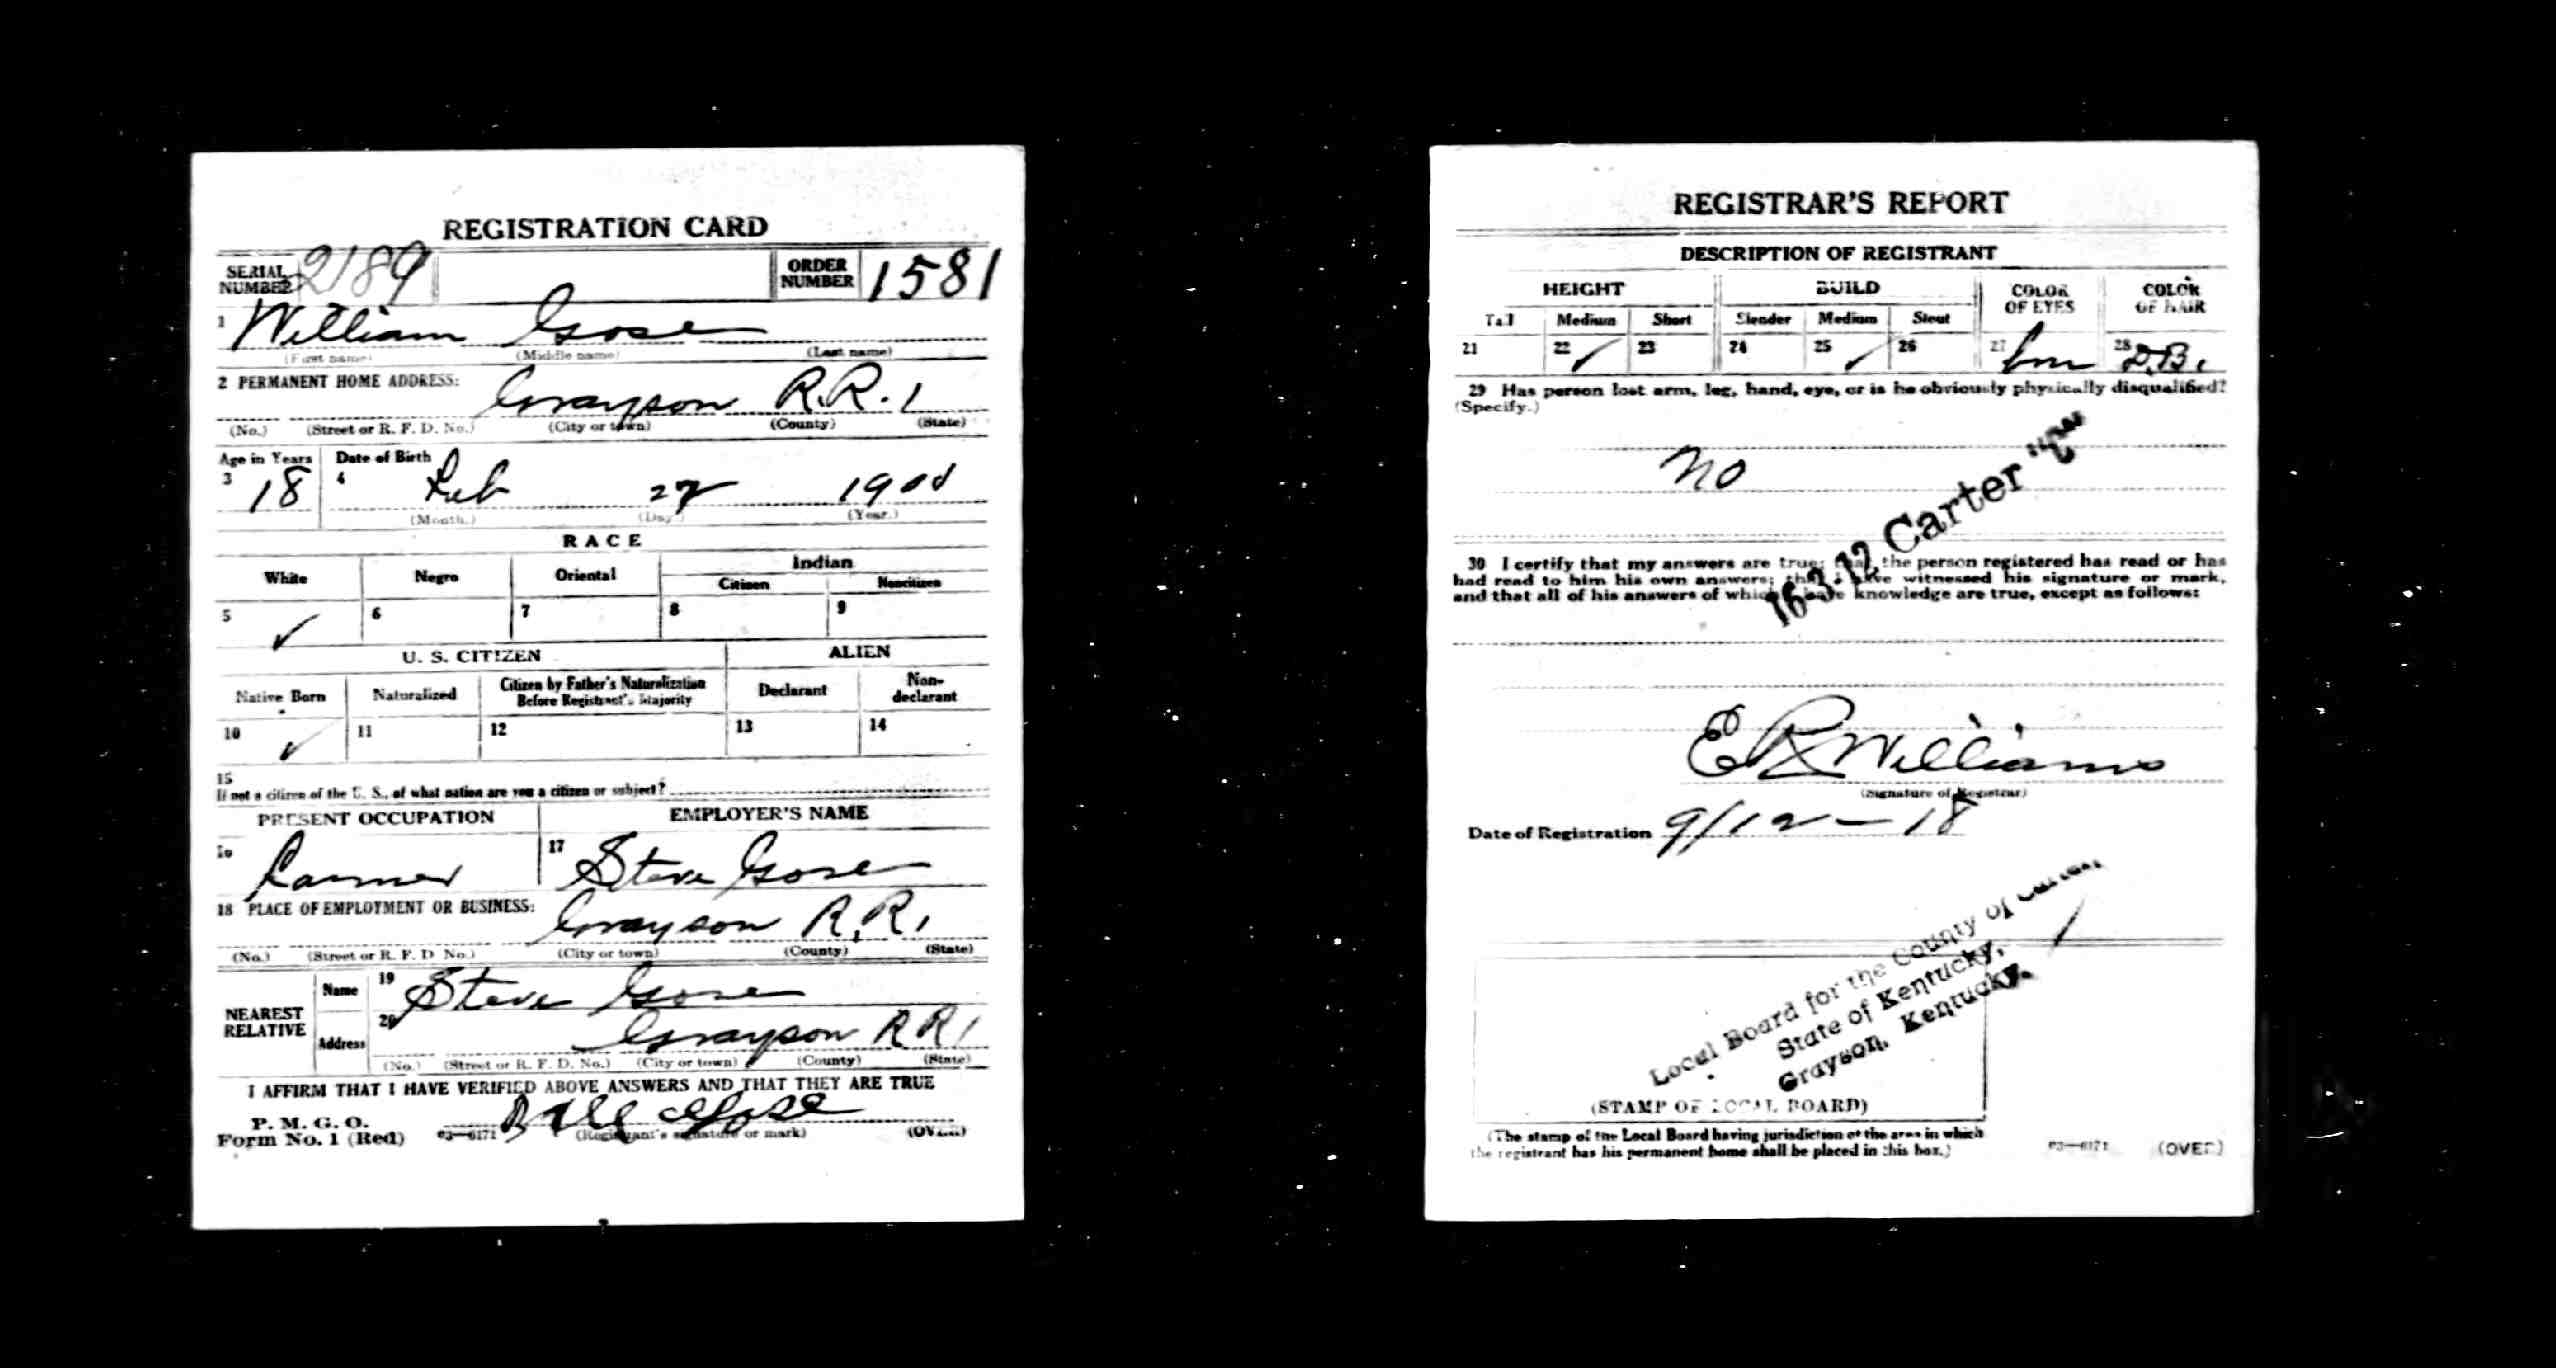 REGISTRATION CARD
SERIAL NUMBER 2189 ORDER NUMBER 1581
1 William Gose
(First name) (Middle name) (Last name)
2 PERMANENT HOME ADDRESS:
Grayson R.R. 1
(No.) (Street or R. F. D. No.) (City or town) (County) (State)
Age in Years Date of Birth
3 18 4 Feb 27 190
(Month.) (Day.) (Year.)
RACE
White Negro Oriental Indian
Citizen Noncitizen
5 ✓ 6 7 8 9
U. S. CITIZEN ALIEN
Native Born Naturalized Citizen by Father's Naturalization Before Registrant's Majority Declarant Non-declarant
10 ✓ 11 12 13 14
15
If not a citizen of the U. S., of what nation are you a citizen or subject?
PRESENT OCCUPATION EMPLOYER'S NAME
16 Farmer 17 Steve Gose
18 PLACE OF EMPLOYMENT OR BUSINESS:
Grayson R.R. 1
(No.) (Street or R. F. D. No.) (City or town) (County) (State)
NEAREST RELATIVE Name 19 Steve Gose
Address 20 Grayson R R 1
(No.) (Street or R. F. D. No.) (City or town) (County) (State)
I AFFIRM THAT I HAVE VERIFIED ABOVE ANSWERS AND THAT THEY ARE TRUE
P. M. G. O.
Form No. 1 (Red) 03—6171 Bill Gose
(Registrant's signature or mark) (OVER)
REGISTRAR'S REPORT
DESCRIPTION OF REGISTRANT
HEIGHT BUILD COLOR OF EYES COLOR OF HAIR
Tall Medium Short Slender Medium Stout
21 22 ✓ 23 24 25 ✓ 26 27 28 D.B.
29 Has person lost arm, leg, hand, eye, or is he obviously physically disqualified?
(Specify.)
no
16-3-12 Carter "C"
30 I certify that my answers are true; that the person registered has read or has
had read to him his own answers; that I have witnessed his signature or mark,
and that all of his answers of which I have knowledge are true, except as follows:
E R Williams
(Signature of Registrar)
Date of Registration 9/12—18
Local Board for the County of Carter,
State of Kentucky,
Grayson, Kentucky.
(STAMP OF LOCAL BOARD)
(The stamp of the Local Board having jurisdiction of the area in which
the registrant has his permanent home shall be placed in this box.)
03—6171 (OVER)